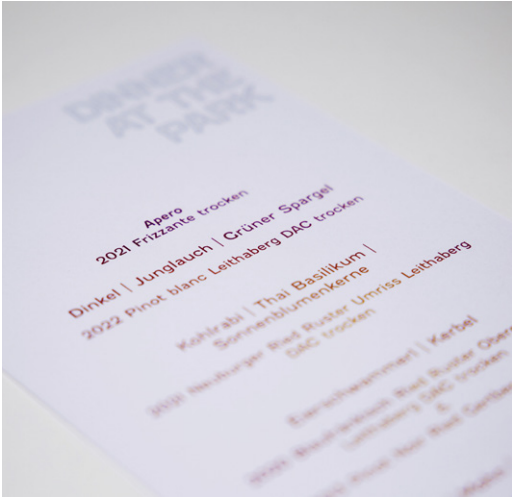 DINNER
AT THE
PARK
Apero
2021 Frizzante trocken
Dinkel | Junglauch | Grüner Spargel
2022 Pinot blanc Leithaberg DAC trocken
Kohlrabi | Thai Basilikum |
Sonnenblumenkerne
2021 Neuburger Ried Ruster Umriss Leithaberg
DAC trocken
Eierschwammerl | Kerbel
2021 Blaufränkisch Ried Ruster
Leithaberg DAC trocken
&
Pinot Noir Ried